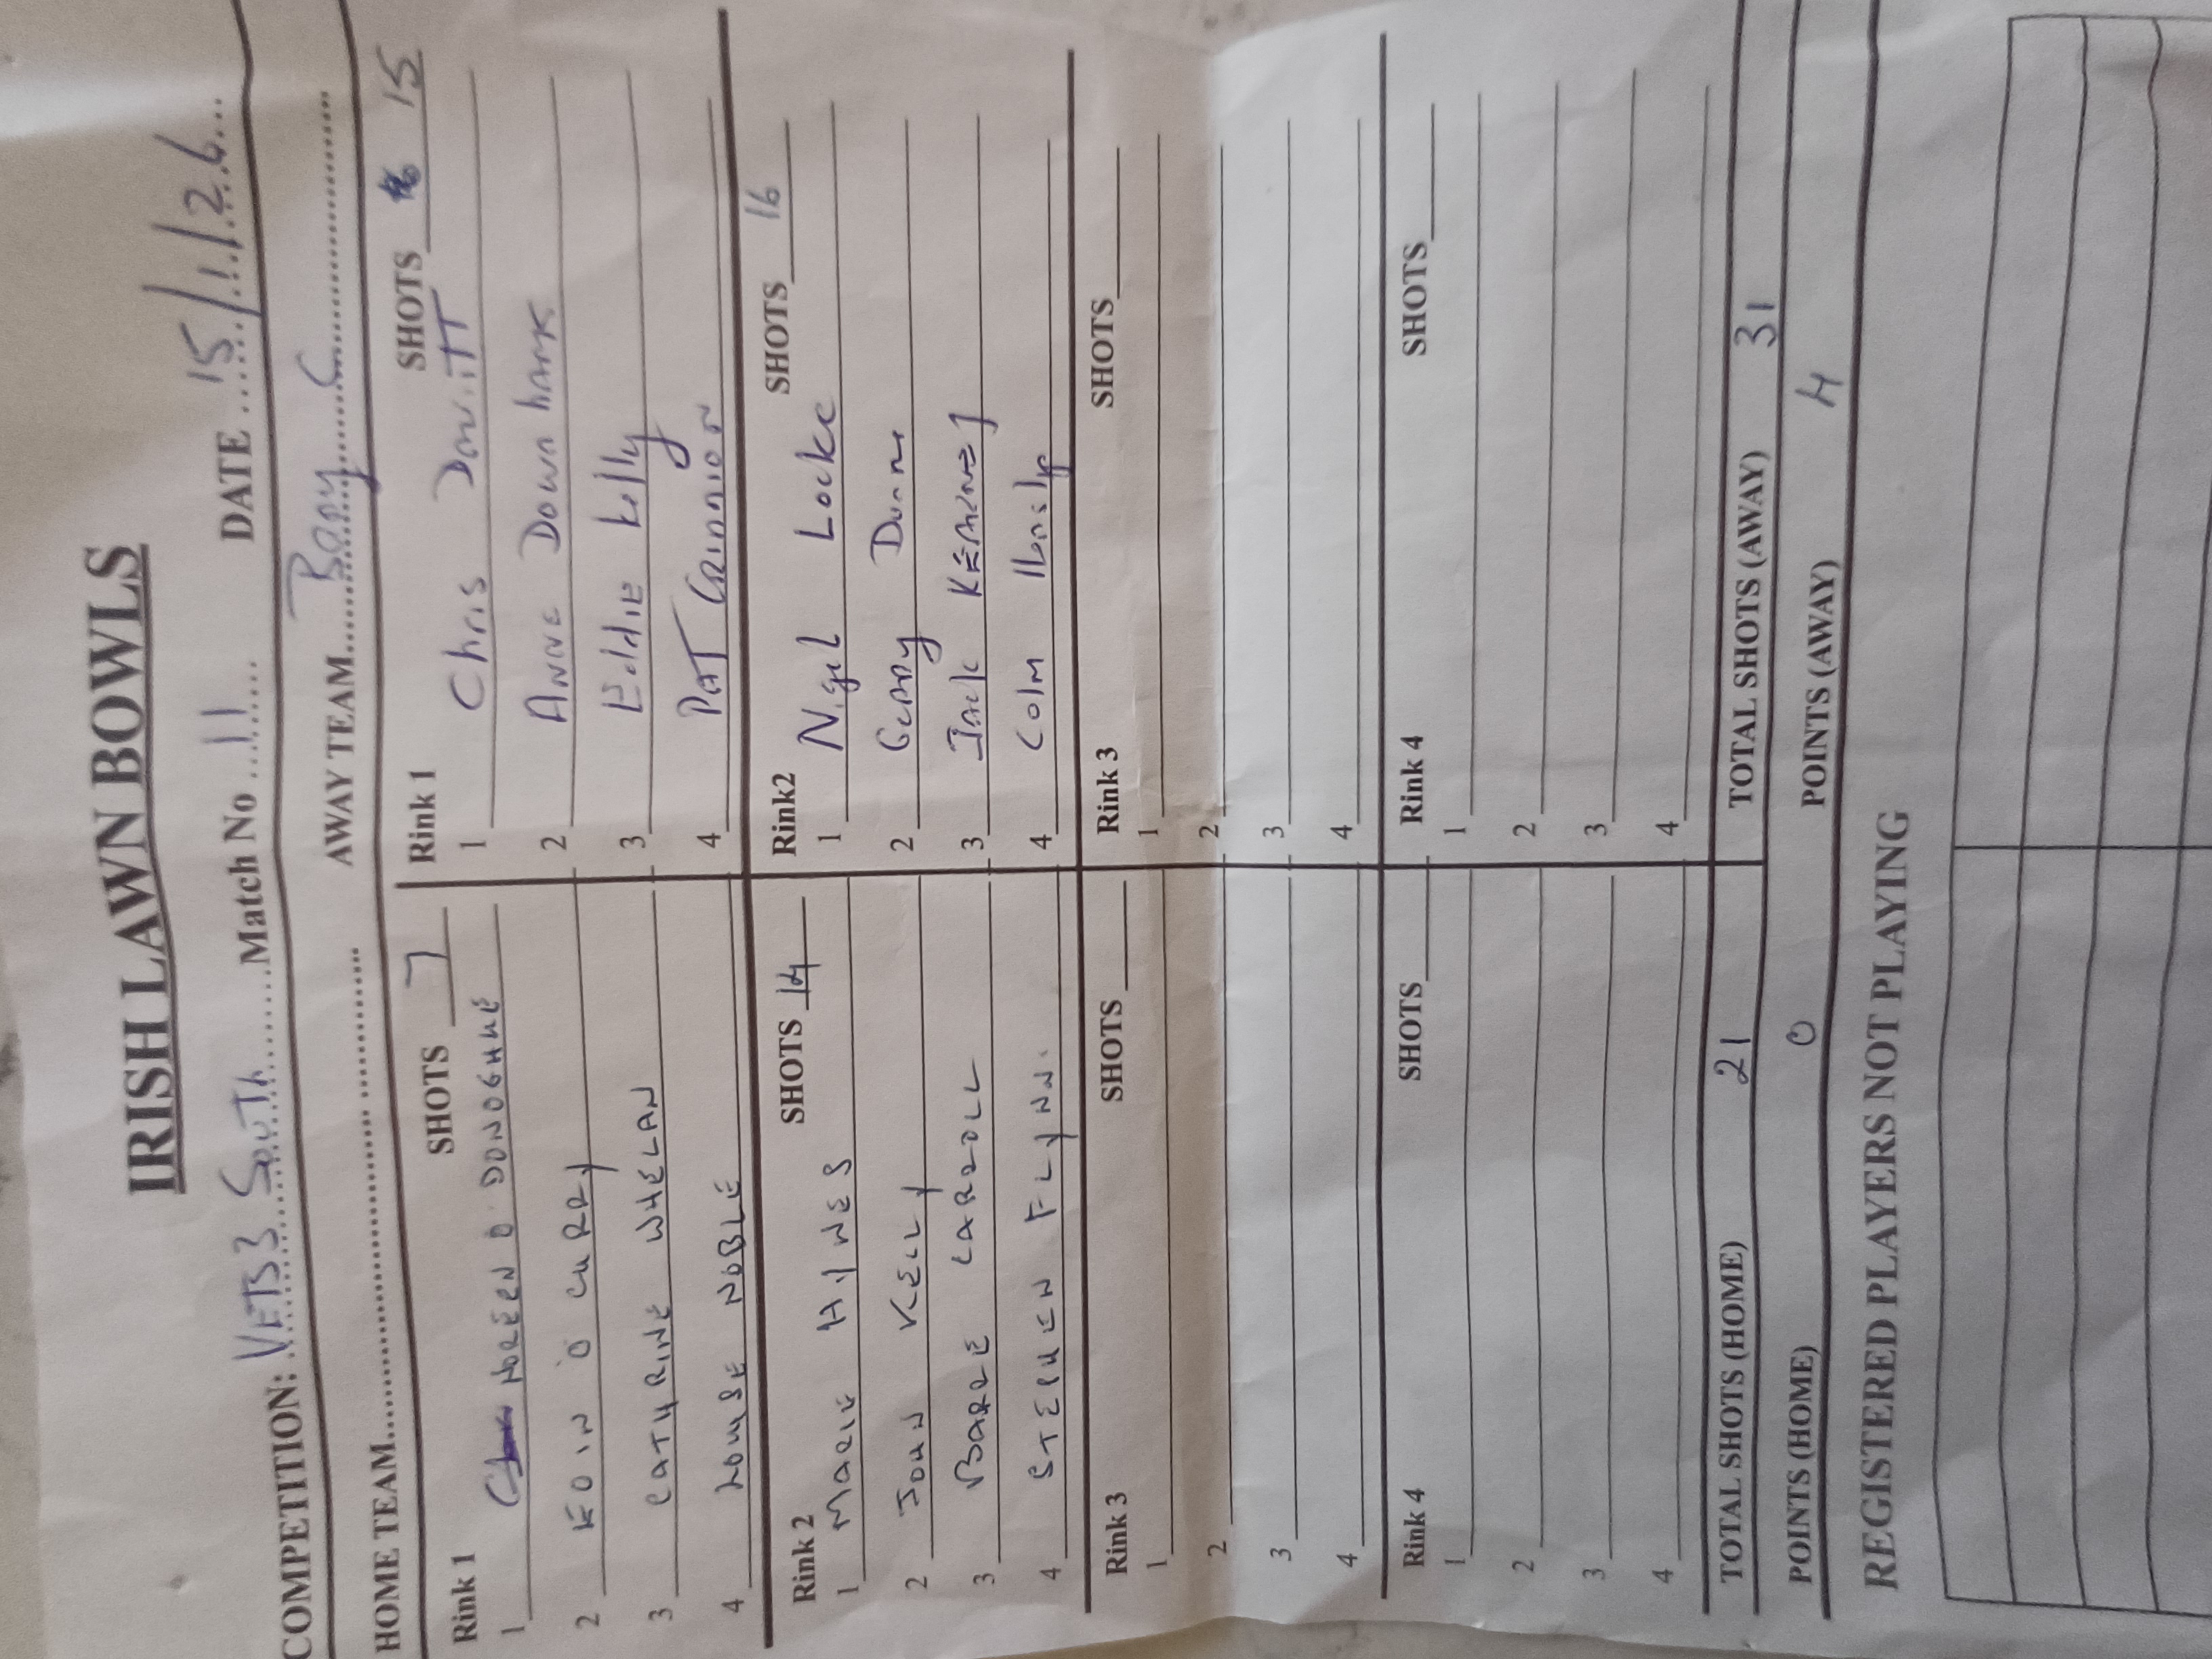 IRISH LAWN BOWLS
COMPETITION: VETS3 South Match No 11 DATE 15/1/26
HOME TEAM AWAY TEAM Bray C
Rink 1 SHOTS 7
1 NOREEN O DONOGHUE
2 EOIN O CURRY
3 CATHRINE WHELAN
4 LOUISE NOBLE
Rink 1 SHOTS 15
1 Chris DeviTT
2 ANNE Down
3 Eddie Kelly
4 PAT CRINNION
Rink 2 SHOTS 14
1 MARIE HYNES
2 JOHN KELLY
3 CARROLL
4 STEPHEN FLYNN.
Rink2 SHOTS 16
1 Nigel Locke
2 Gerry Dunn
3 Jack KEARNEY
4 Colm
Rink 3 SHOTS
1
2
3
4
Rink 3 SHOTS
1
2
3
4
Rink 4 SHOTS
1
2
3
4
Rink 4 SHOTS
1
2
3
4
TOTAL SHOTS (HOME) 21 TOTAL SHOTS (AWAY) 31
POINTS (HOME) 0 POINTS (AWAY) 4
REGISTERED PLAYERS NOT PLAYING